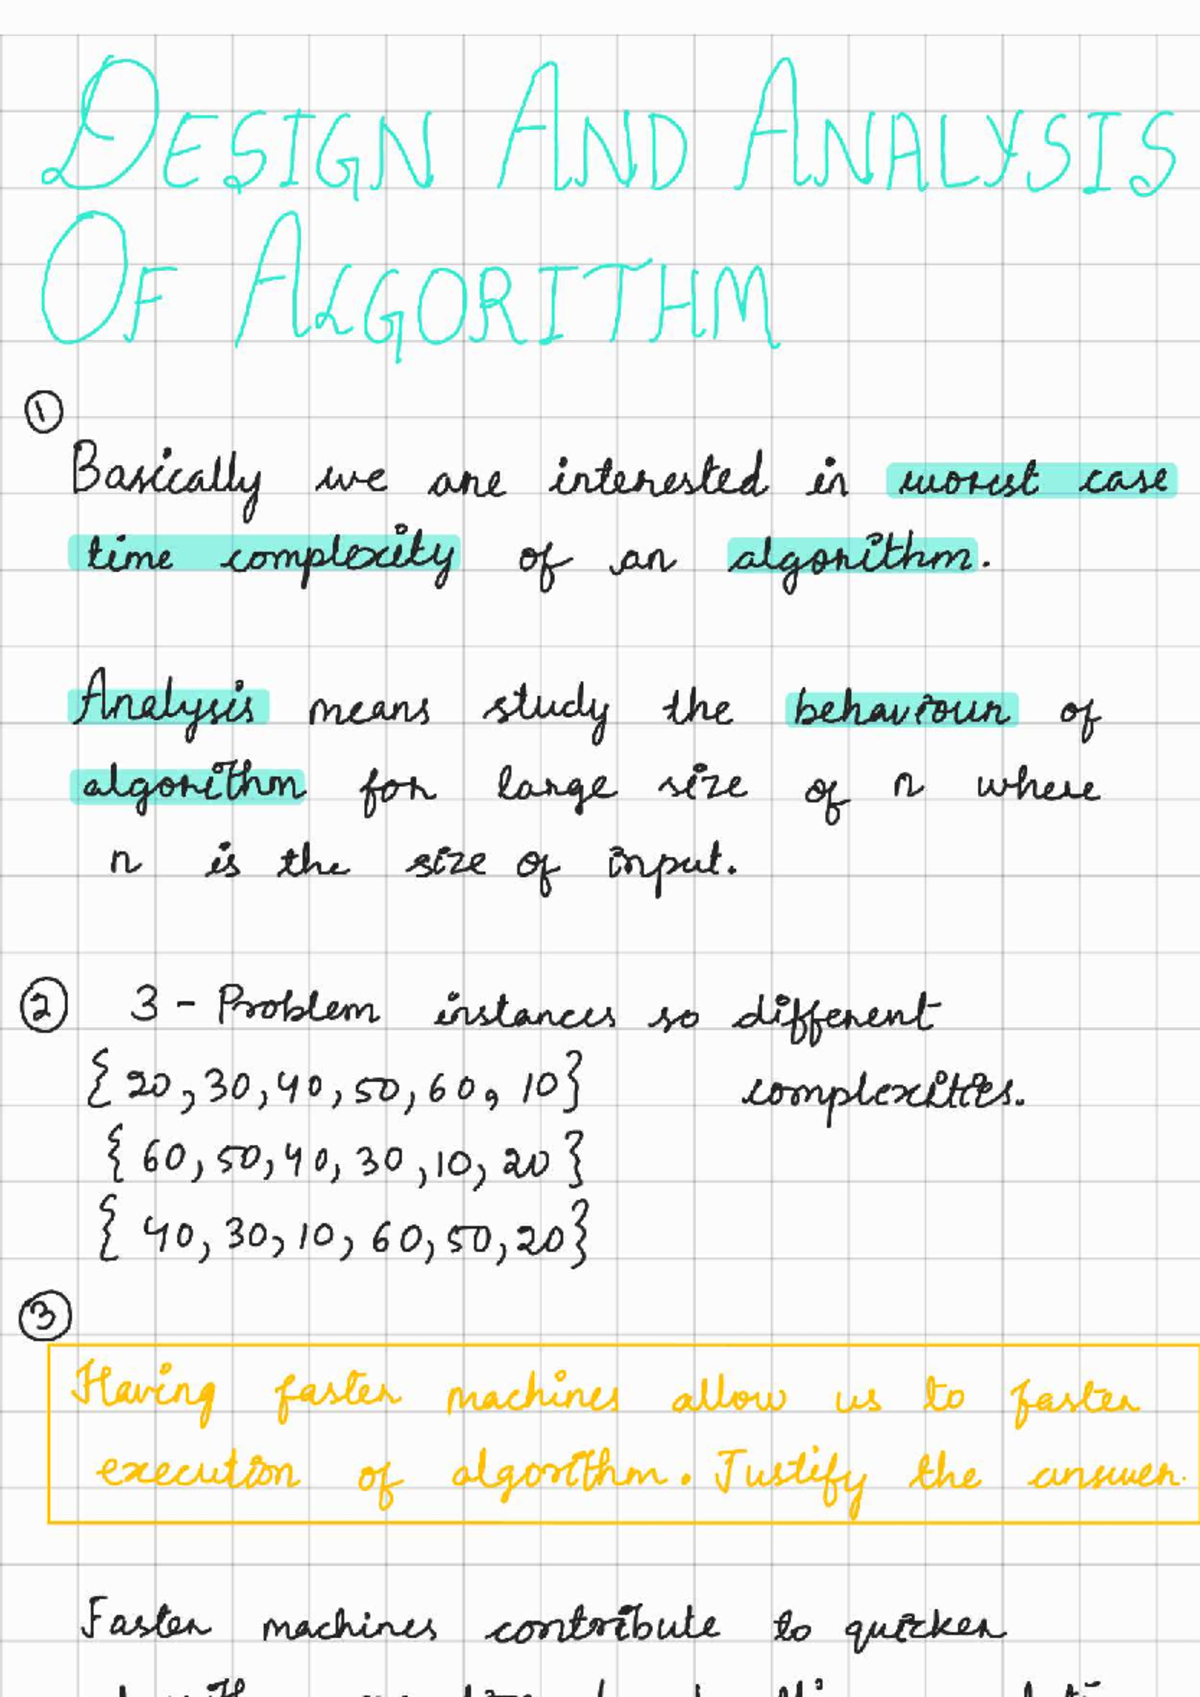 DESIGN AND ANALYSIS
OF ALGORITHM
1
Basically we are interested in worst case
time complexity of an algorithm.
Analysis means study the behaviour of
algorithm for large size of n where
n is the size of input.
2 3 - Problem instances so different
{ 20, 30, 40, 50, 60, 10} complexities.
{ 60, 50, 40, 30, 10, 20 }
{ 40, 30, 10, 60, 50, 20}
3
Having faster machines allow us to faster
execution of algorithm. Justify the answer.
Faster machines contribute to quicker